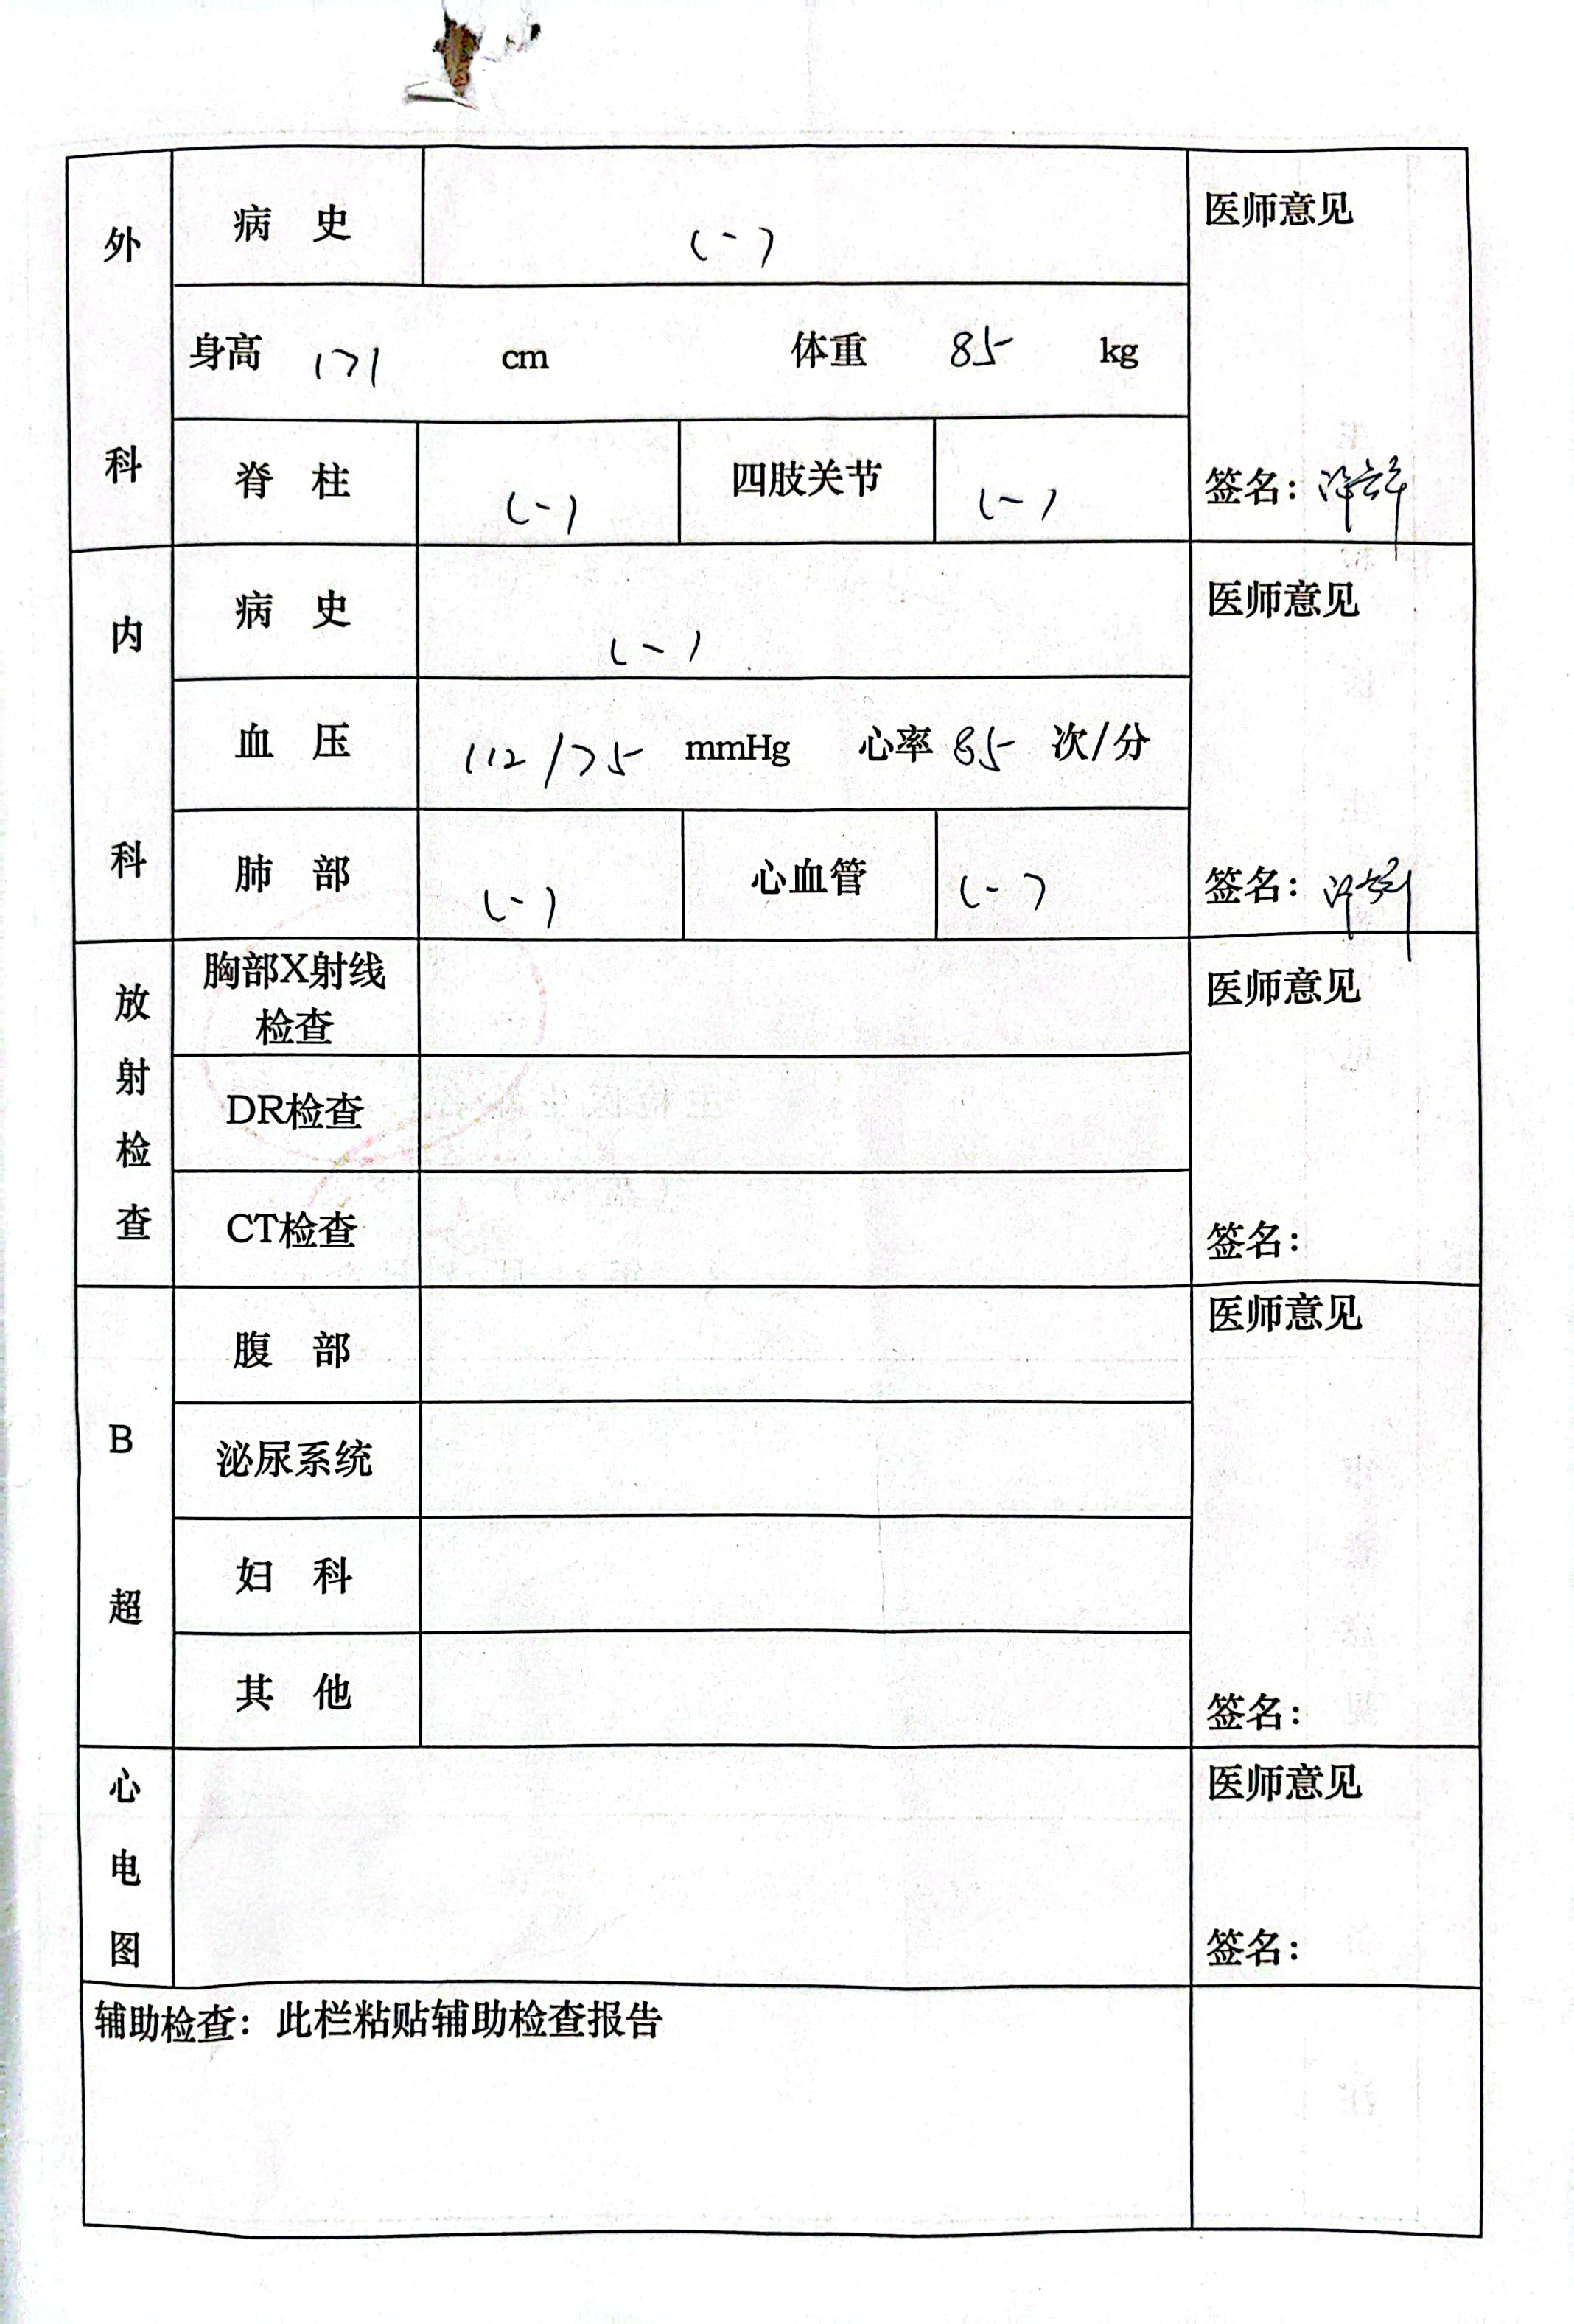 外科
病史 (-)
医师意见
身高 171 cm 体重 85 kg
脊柱 (-) 四肢关节 (-)
签名:
内科
病史 (-)
医师意见
血压 112/75 mmHg 心率 85 次/分
肺部 (-) 心血管 (-)
签名:
放射检查
胸部X射线
检查
医师意见
DR检查
CT检查
签名:
B超
腹部
医师意见
泌尿系统
妇科
其他
签名:
心电图
医师意见
签名:
辅助检查:此栏粘贴辅助检查报告